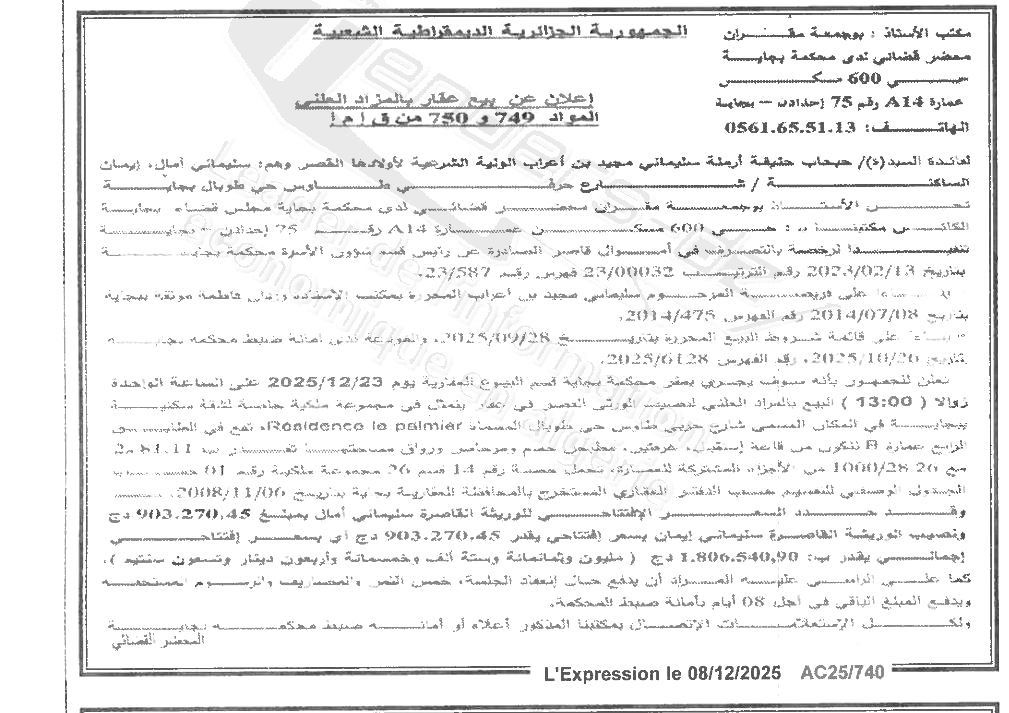 مكتب الأستاذ : بوجمعة مقـــران
محضر قضائي لدى محكمة بجايـــة
حـــي 600 مسكـــن
عمارة A14 رقم 75 إحدادن – بجاية
الهاتـــف: 0561.65.51.13
الجمهوريـة الجزائريـة الديمقراطيـة الشعبيـة
إعلان عن بيع عقار بالمزاد العلني
المواد 749 و 750 من ق إ م إ
لفائدة السيد(ة)/ حبحاب حنيفة أرملة سليماني مجيد بن أعراب الولية الشرعية لأولادها القصر وهم: سليماني أمال، إيمان
الساكنـــة / شـــارع حرفـــي طـــاوس حي طوبال بجايـــة
نحـــن الأستـــاذ بوجمعـــة مقـــران محضـــر قضائـــي لدى محكمة بجاية مجلس قضاء بجايـــة
الكائـــن مكتبنـــا بـ : حـــي 600 مسكـــن عمـــارة A14 رقـــم 75 إحدادن – بجايـــة
تنفيـــذا لرخصة بالتصرف في أمـــوال قاصر الصادرة عن رئيس قسم شؤون الأسرة محكمة بجايـــة
بتاريخ 2023/02/13 رقم الترتيـــب 23/00032 فهرس رقم 23/587.
بنـــاءا على فريضـــة المرحـــوم سليماني مجيد بن أعراب المحررة بمكتب الأستاذة فاطمة موثقة ببجاية
بتاريخ 2014/07/08 رقم الفهرس 2014/475.
– بنـــاءا على قائمة شـــروط البيع المحررة بتاريـــخ 2025/09/28، والمودعة لدى أمانة ضبط محكمة بجايـــة
بتاريخ 2025/10/26، رقم الفهرس 2025/6128.
نعلن للجمهور بأنه سوف يجري بمقر محكمة بجاية قسم البيوع العقارية يوم 2025/12/23 على الساعة الواحدة
زوالا ( 13:00 ) البيع بالمزاد العلني لنصيب الورثة القصر في عقار يتمثل في مجموعة ملكية خاصة لشقة سكنيـــة
ببجايـــة في المكان المسمى شارع حرفي طاوس حي طوبال المسماة Résidence le palmier، تقع في الطابـــق
الرابع عمارة B تتكون من قاعة إستقبال، غرفتين، مطبخ، حمام ومرحاض ورواق مساحتهـــا تقـــدر بـ 81.11 م2
مع 1000/28.26 من الأجزاء المشتركة للعمارة، تحمل حصة رقم 14 قسم 26 مجموعة ملكية رقم 01 حســـب
الجدول الوصفي للتقسيم حسب الدفتر العقاري المستخرج بالمحافظة العقارية بجاية بتاريـــخ 2008/11/06.
وقـــد حـــدد السعـــر الإفتتاحـــي للوريثة القاصرة سليماني أمال بمبلـــغ 903.270.45 دج
ونصيب الوريثـــة القاصـــرة سليماني إيمان بسعر إفتتاحي يقدر 903.270.45 دج أي بسعـــر إفتتاحـــي
إجمالـــي يقدر ب: 1.806.540,90 دج ( مليون وثمانمائة وستة ألف وخمسمائة وأربعون دينار وتسعون سنتيم ).
كما علـــى الراســـي عليـــه المـــزاد أن يدفع حـــال إنعقاد الجلسة، خمس الثمن والمصاريف والرســـوم المستحقـــة
ويدفع المبلغ الباقي في أجل 08 أيام بأمانة ضبط المحكمة.
ولكـــل الإستعلامـــات الإتصـــال بمكتبنا المذكور أعلاه أو أمانـــة ضبط محكمـــة بجايـــة
المحضر القضائي
L'Expression le 08/12/2025 AC25/740
Leader de l'information
économique en algérie